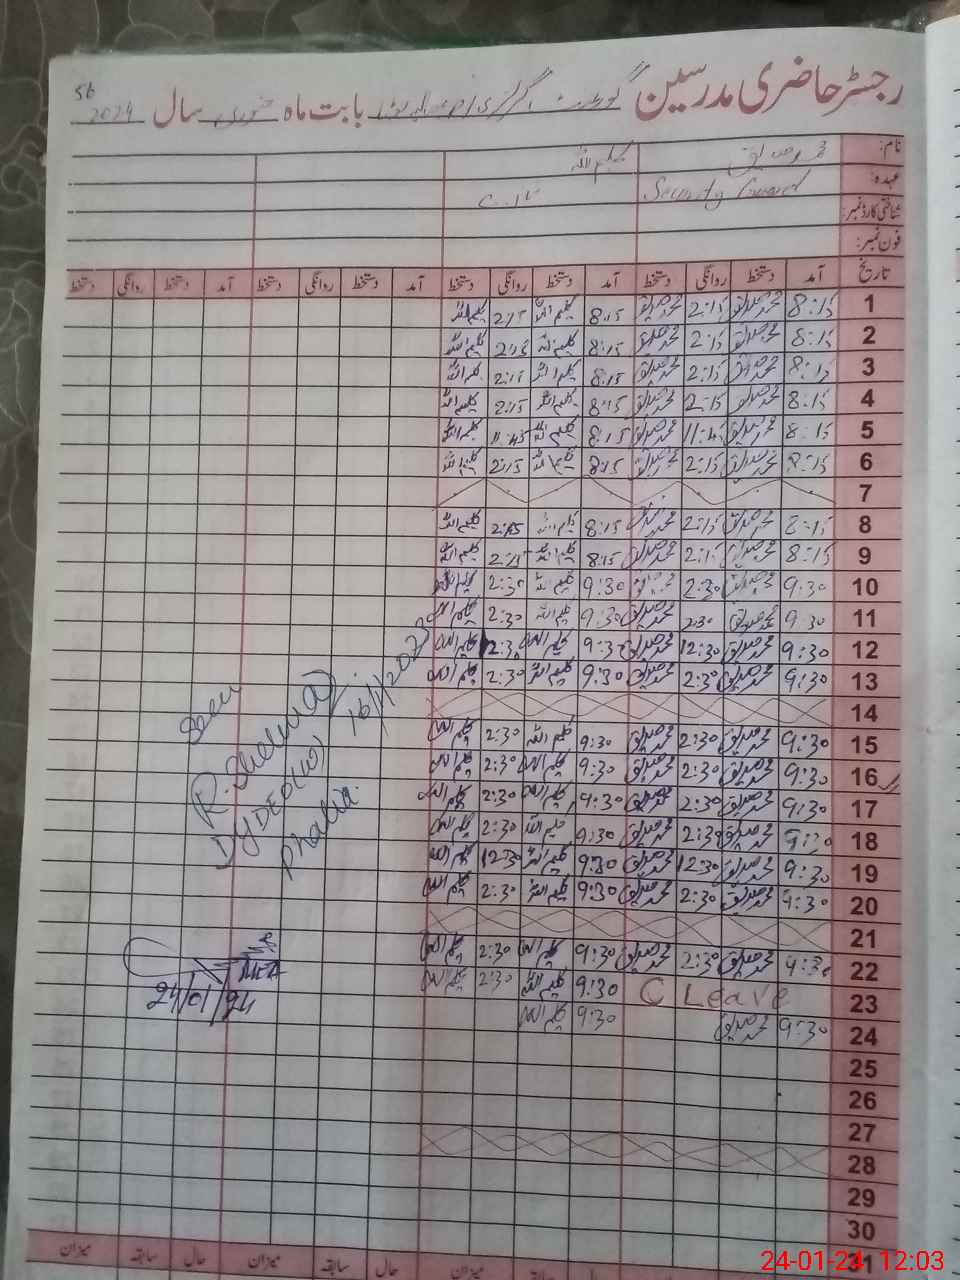 56
رجسٹر حاضری مدرسین گورنمنٹ گرلز بابت ماہ جنوری سال 2024
نام: محمد صدیق کلیم اللہ
عہدہ: Security Guard C.IV
شناختی کارڈ نمبر:
فون نمبر:
تاریخ آمد دستخط روانگی دستخط آمد دستخط روانگی دستخط آمد دستخط روانگی دستخط آمد دستخط روانگی دستخط
1 8:15 محمد صدیق 2:15 محمد صدیق 8:15 کلیم اللہ 2:15 کلیم اللہ
2 8:15 محمد صدیق 2:15 محمد صدیق 8:15 کلیم اللہ 2:15 کلیم اللہ
3 8:15 محمد صدیق 2:15 محمد صدیق 8:15 کلیم اللہ 2:15 کلیم اللہ
4 8:15 محمد صدیق 2:15 محمد صدیق 8:15 کلیم اللہ 2:15 کلیم اللہ
5 8:15 محمد صدیق 11:45 محمد صدیق 8:15 کلیم اللہ 11:45 کلیم اللہ
6 8:15 محمد صدیق 2:15 محمد صدیق 8:15 کلیم اللہ 2:15 کلیم اللہ
7
8 8:15 محمد صدیق 2:15 محمد صدیق 8:15 کلیم اللہ 2:15 کلیم اللہ
9 8:15 محمد صدیق 2:15 محمد صدیق 8:15 کلیم اللہ 2:15 کلیم اللہ
10 9:30 محمد صدیق 2:30 محمد صدیق 9:30 کلیم اللہ 2:30 کلیم اللہ
11 9:30 محمد صدیق 2:30 محمد صدیق 9:30 کلیم اللہ 2:30 کلیم اللہ
12 9:30 محمد صدیق 12:30 محمد صدیق 9:30 کلیم اللہ 12:30 کلیم اللہ
13 9:30 محمد صدیق 2:30 محمد صدیق 9:30 کلیم اللہ 2:30 کلیم اللہ
14
15 9:30 محمد صدیق 2:30 محمد صدیق 9:30 کلیم اللہ 2:30 کلیم اللہ
16 9:30 محمد صدیق 2:30 محمد صدیق 9:30 کلیم اللہ 2:30 کلیم اللہ
17 9:30 محمد صدیق 2:30 محمد صدیق 9:30 کلیم اللہ 2:30 کلیم اللہ
18 9:30 محمد صدیق 2:30 محمد صدیق 9:30 کلیم اللہ 2:30 کلیم اللہ
19 9:30 محمد صدیق 12:30 محمد صدیق 9:30 کلیم اللہ 12:30 کلیم اللہ
20 9:30 محمد صدیق 2:30 محمد صدیق 9:30 کلیم اللہ 2:30 کلیم اللہ
21
22 9:30 محمد صدیق 2:30 محمد صدیق 9:30 کلیم اللہ 2:30 کلیم اللہ
23 C Leave 9:30 کلیم اللہ 2:30 کلیم اللہ
24 9:30 محمد صدیق 9:30 کلیم اللہ
25
26
27
28
29
30
31
Seen
16/1/2023
Phalia
MEA
24/01/24
میزان سابقہ حال میزان سابقہ حال میزان سابقہ حال
24-01-24 12:03